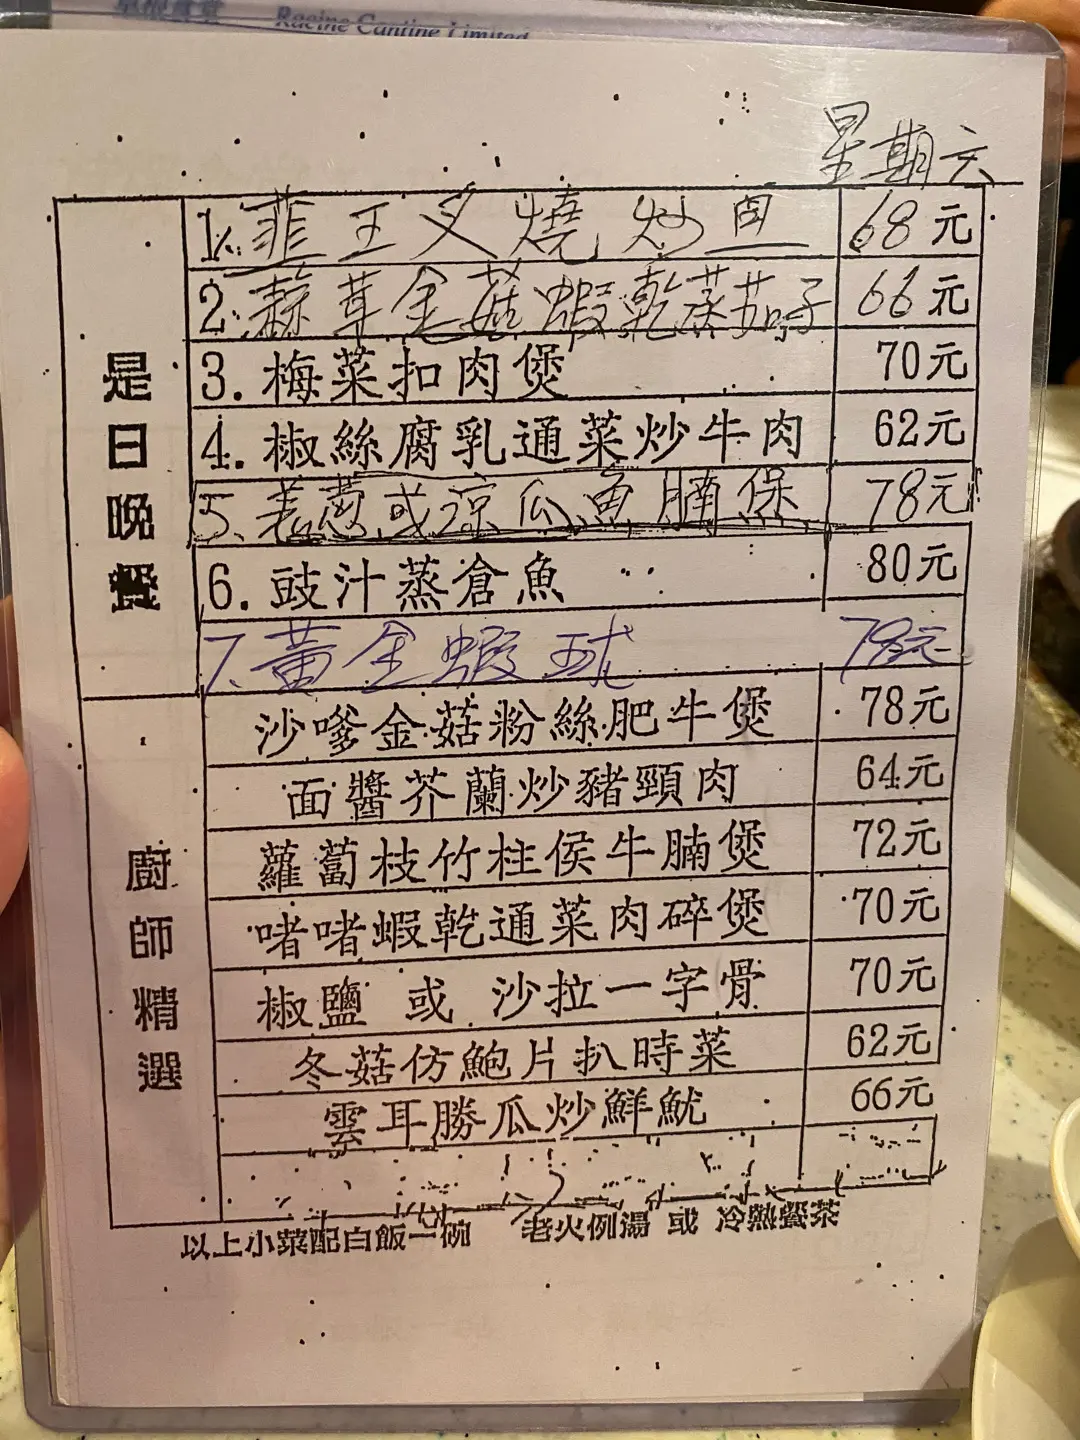 Racine Cantine Limited
星期六
是日晚餐
1. 韮王叉燒炒旦 68元
2. 蒜茸金菇蝦乾蒸茄子 66元
3. 梅菜扣肉煲 70元
4. 椒絲腐乳通菜炒牛肉 62元
5. 姜葱或凉瓜魚腩保 78元
6. 豉汁蒸倉魚 80元
7. 黃金蝦球 78元
廚師精選
沙嗲金菇粉絲肥牛煲 78元
面醬芥蘭炒豬頸肉 64元
蘿蔔枝竹柱侯牛腩煲 72元
啫啫蝦乾通菜肉碎煲 70元
椒鹽 或 沙拉一字骨 70元
冬菇仿鮑片扒時菜 62元
雲耳勝瓜炒鮮魷 66元
以上小菜配白飯一碗 老火例湯 或 冷熱餐茶